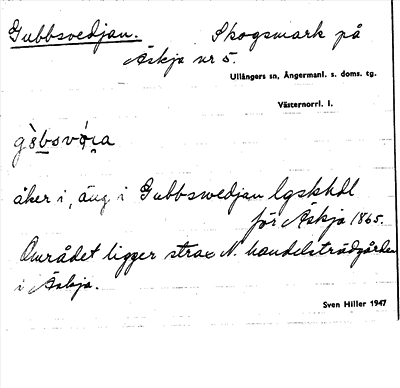 Gubbsvedjan. Skogsmark på
Äskja nr 5.
Ullångers sn, Ångermanl. s. doms. tg.
Västernorrl. l.
åker i, äng i Gubbswedjan lgskhdl
för Äskja 1865.
Området ligger strax N. handelsträdgården
i Äskja.
Sven Hiller 1947